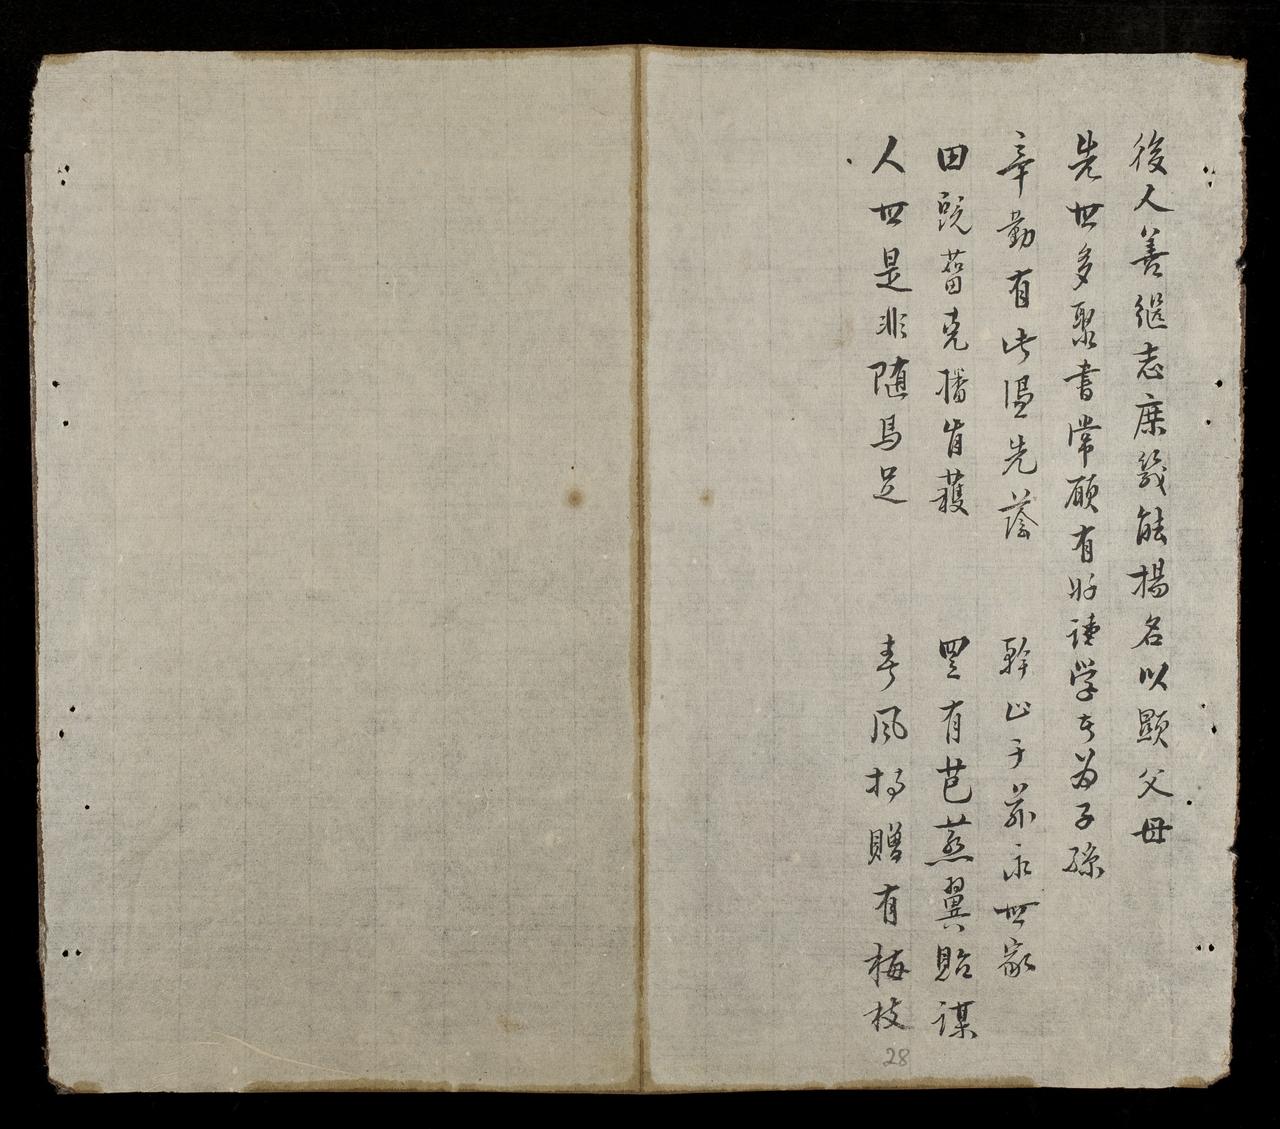 後人善继志庶幾能揚名以顯父母
先世多聚書常願有好读学者為子孫
辛勤有此憑先蔭　幹止于茲永世家
田既菑克播肯穫　豐有芑燕翼貽謀
人世是非随馬足　春風持贈有梅枝
28